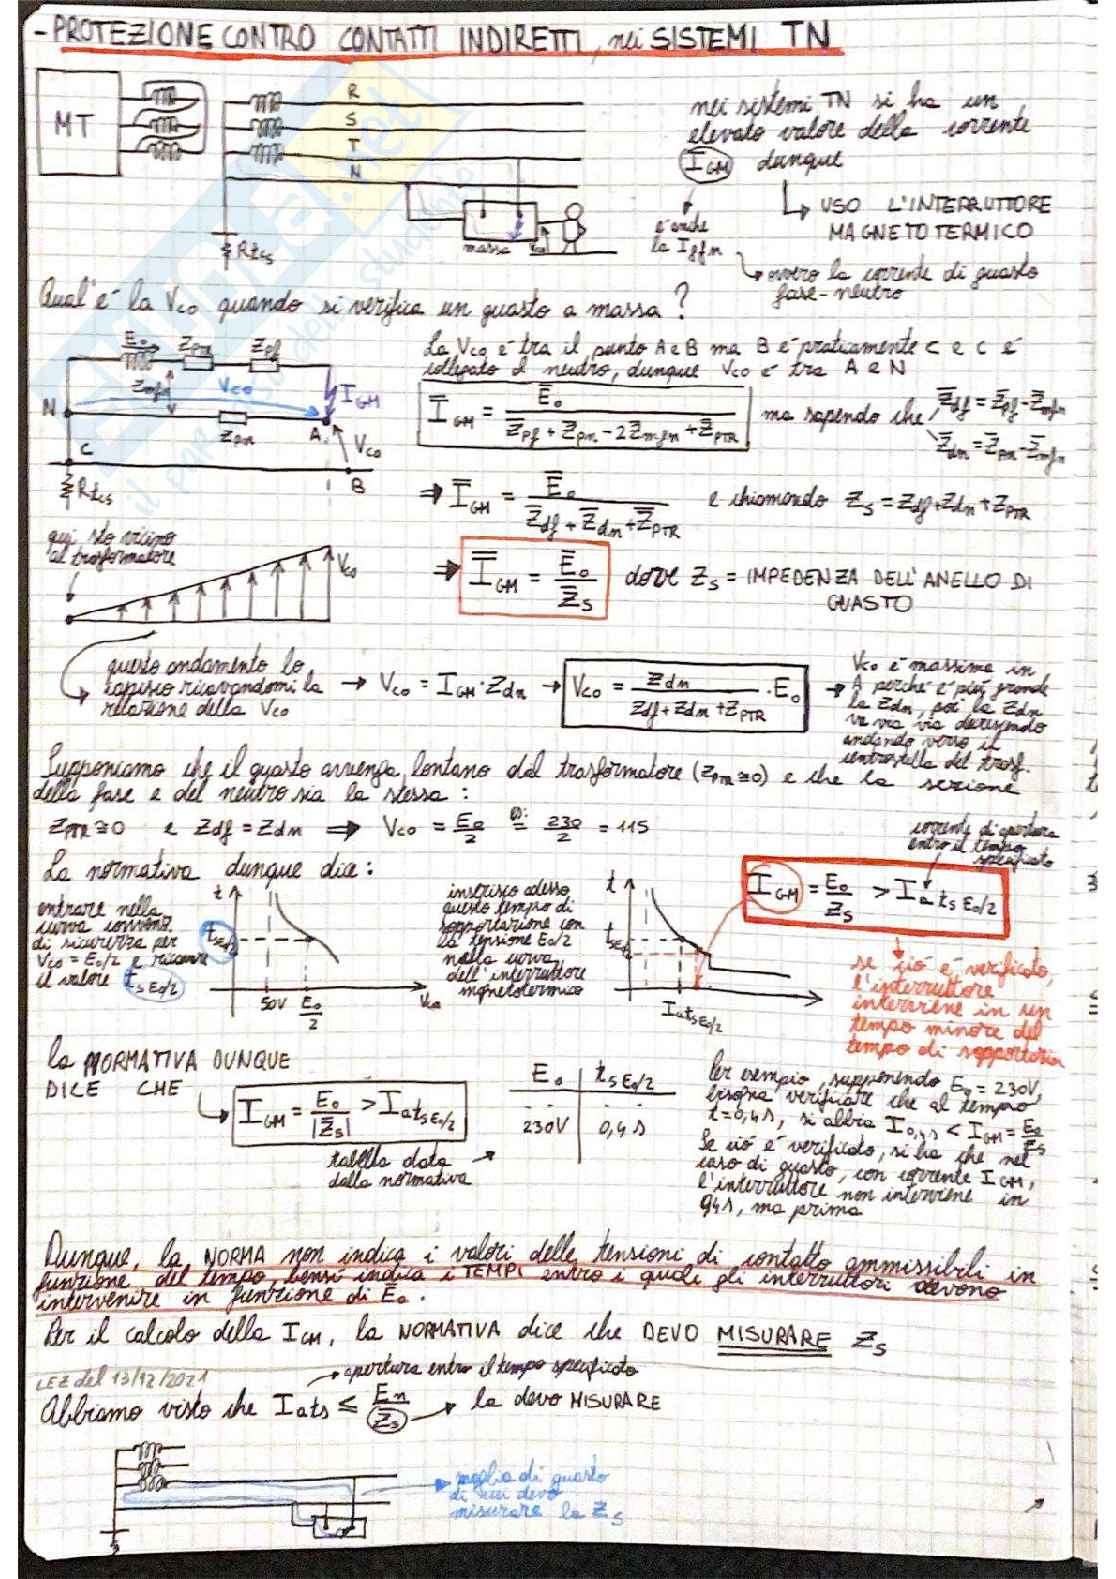 -PROTEZIONE CONTRO CONTATTI INDIRETTI, nei SISTEMI TN
MT
R
S
T
N
massa
Rtcs
nei sistemi TN si ha un
elevato valore della corrente
IGM dunque
USO L'INTERRUTTORE
MAGNETOTERMICO
è anche
la Igfn
ovvero la corrente di guasto
fase-neutro
Qual'è la Vco quando si verifica un guasto a massa?
E0 Zpn Zpf
Zmfn Vco IGM
N Zpn A
C Vco
B
Rtcs
La Vco è tra il punto A e B ma B è praticamente C e C è
collegato al neutro, dunque Vco è tra A e N
IGM = E0 / Zpf + Zpn - 2Zmfn + ZPTR
ma sapendo che Zdf = Zpf - Zmfn
Zdn = Zpn - Zmfn
⇒ IGM = E0 / Zdf + Zdn + ZPTR e chiamando ZS = Zdf + Zdn + ZPTR
qui sto vicino
al trasformatore
Vco
⇒ IGM = E0 / ZS dove ZS = IMPEDENZA DELL'ANELLO DI
GUASTO
questo andamento lo
capisco ricavandomi la
relazione della Vco
→ Vco = IGM · Zdn → Vco = Zdn / Zdf + Zdn + ZPTR · E0
Vco è massima in
A perché è più grande
la Zdn, poi la Zdn
va via via decrescendo
andando verso il
centrostella del trasf.
Supponiamo che il guasto avvenga lontano dal trasformatore (ZPTR ≅ 0) e che la sezione
della fase e del neutro sia la stessa:
ZPTR ≅ 0 e Zdf = Zdn ⇒ Vco = E0/2 = 230/2 = 115
corrente di apertura
entro il tempo
specificato
La normativa dunque dice:
entrare nella
curva convenz.
di sicurezza per
Vco = E0/2 e ricavare
il valore tS E0/2
t
tSE0/2
50V E0/2 Vco
inserisco adesso
questo tempo di
sopportazione con
la tensione E0/2
nella curva
dell'interruttore
magnetotermico
t
tSE0/2
IatSE0/2
IGM = E0/ZS > IatS E0/2
se ciò è verificato,
l'interruttore
interviene in un
tempo minore del
tempo di sopportazio
la NORMATIVA DUNQUE
DICE CHE
IGM = E0/|ZS| > IatSE0/2
tabella data
dalla normativa
E0 tS E0/2
230V 0,4 s
Per esempio, supponendo E0 = 230V,
bisogna verificare che al tempo
t=0,4s, si abbia I0,4s < IGM = E0/ZS
Se ciò è verificato, si ha che nel
caso di guasto, con corrente IGM,
l'interruttore non interviene in
0,4s, ma prima
Dunque, la NORMA non indica i valori delle tensioni di contatto ammissibili in
funzione del tempo, bensì indica i TEMPI entro i quali gli interruttori devono
intervenire in funzione di E0.
Per il calcolo della IGM, la NORMATIVA dice che DEVO MISURARE ZS
LEZ del 13/12/2021
apertura entro il tempo specificato
Abbiamo visto che Iats ≤ En/ZS → la devo MISURARE
maglia di guasto
di cui devo
misurare la ZS